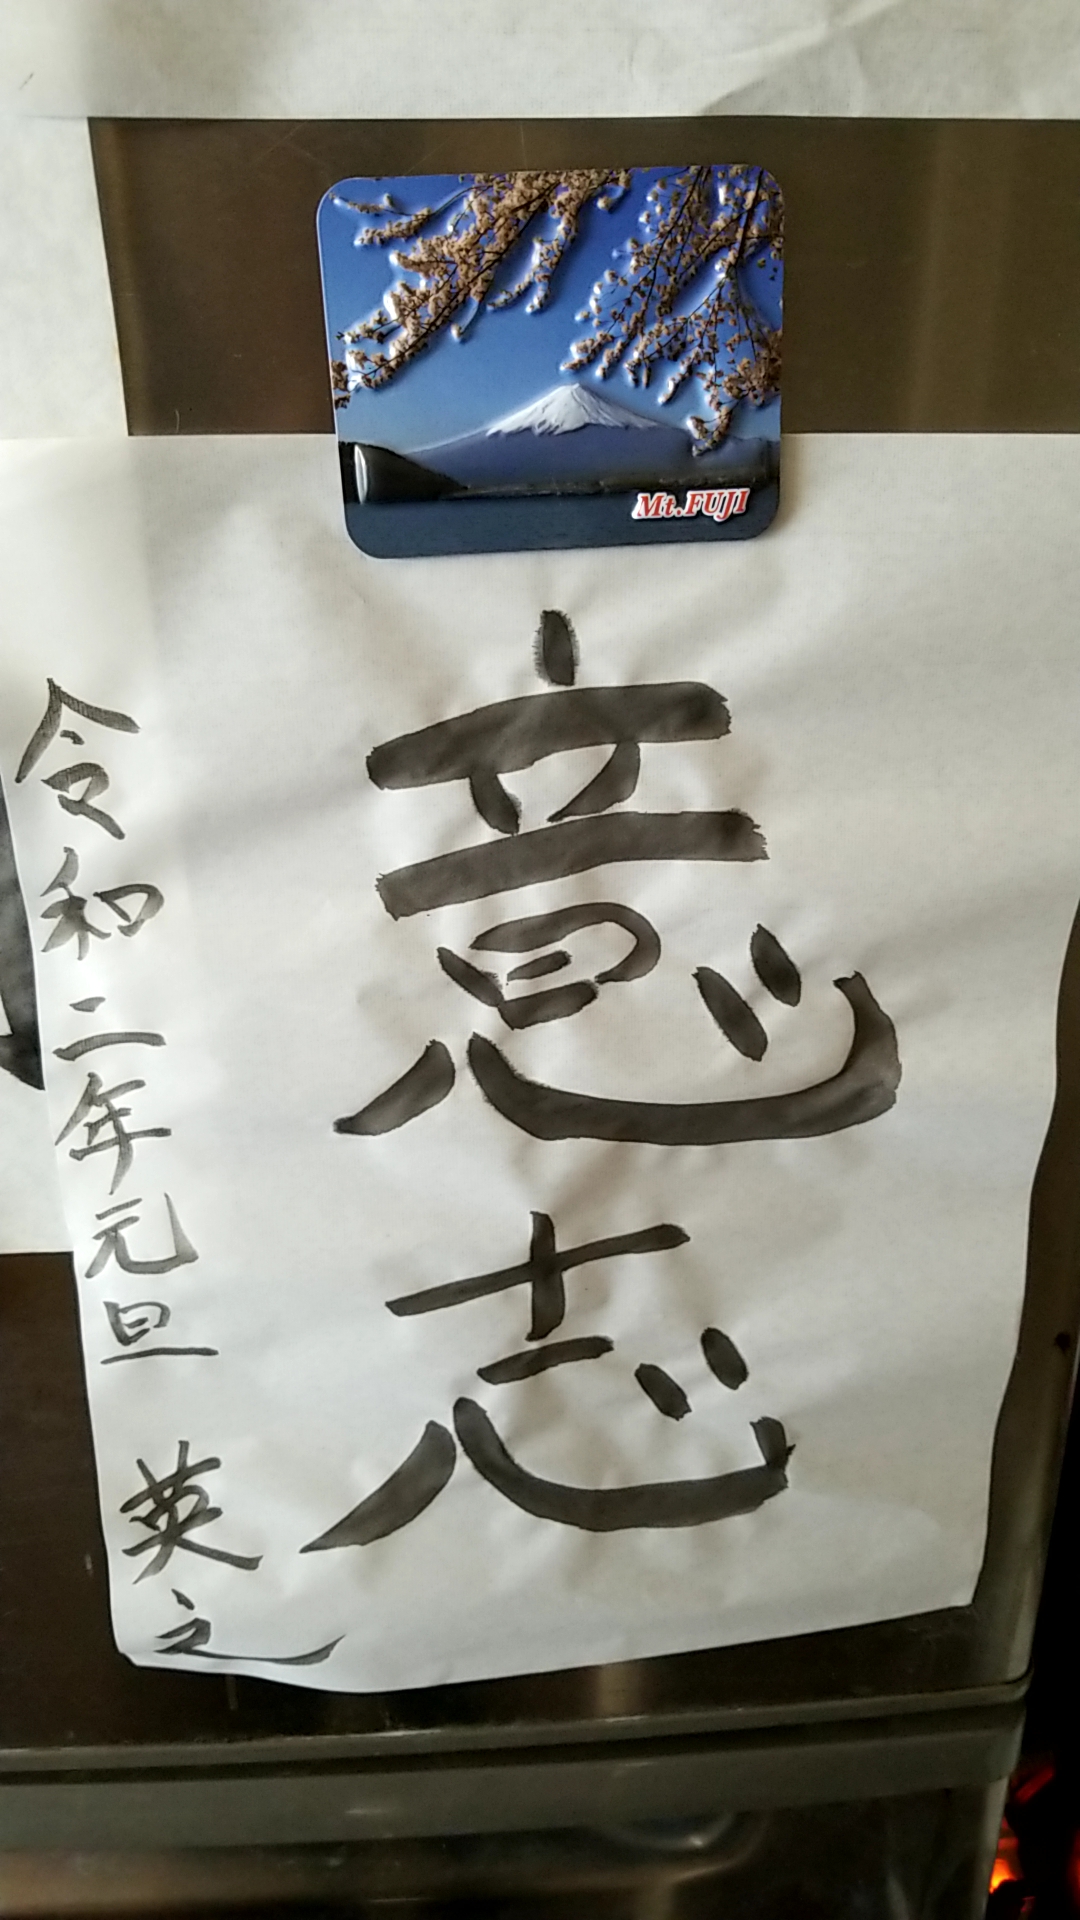 Mt.FUJI
意志
令和二年元旦 英之